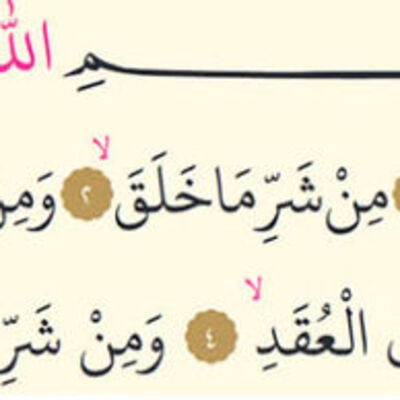 ـمِ اللّٰ
مِنْ شَرِّ مَا خَلَقَ ۙ ٢ وَمِنْ
الْعُقَدِ ۙ ٤ وَمِنْ شَرِّ